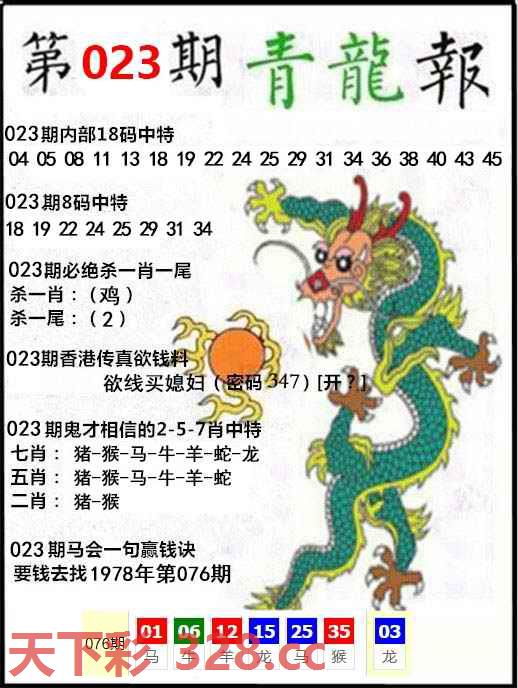 第023期青龍報
023期内部18码中特
04 05 08 11 13 18 19 22 24 25 29 31 34 36 38 40 43 45
023期8码中特
18 19 22 24 25 29 31 34
023期必绝杀一肖一尾
杀一肖：（鸡）
杀一尾：（2）
023期香港传真欲钱料
欲线买媳妇（密码347）[开？]
023期鬼才相信的2-5-7肖中特
七肖：猪-猴-马-牛-羊-蛇-龙
五肖：猪-猴-马-牛-羊-蛇
二肖：猪-猴
023期马会一句赢钱诀
要钱去找1978年第076期
076期 01 06 12 15 25 35 03
马 牛 羊 龙 马 猴 龙
天下彩 328.cc